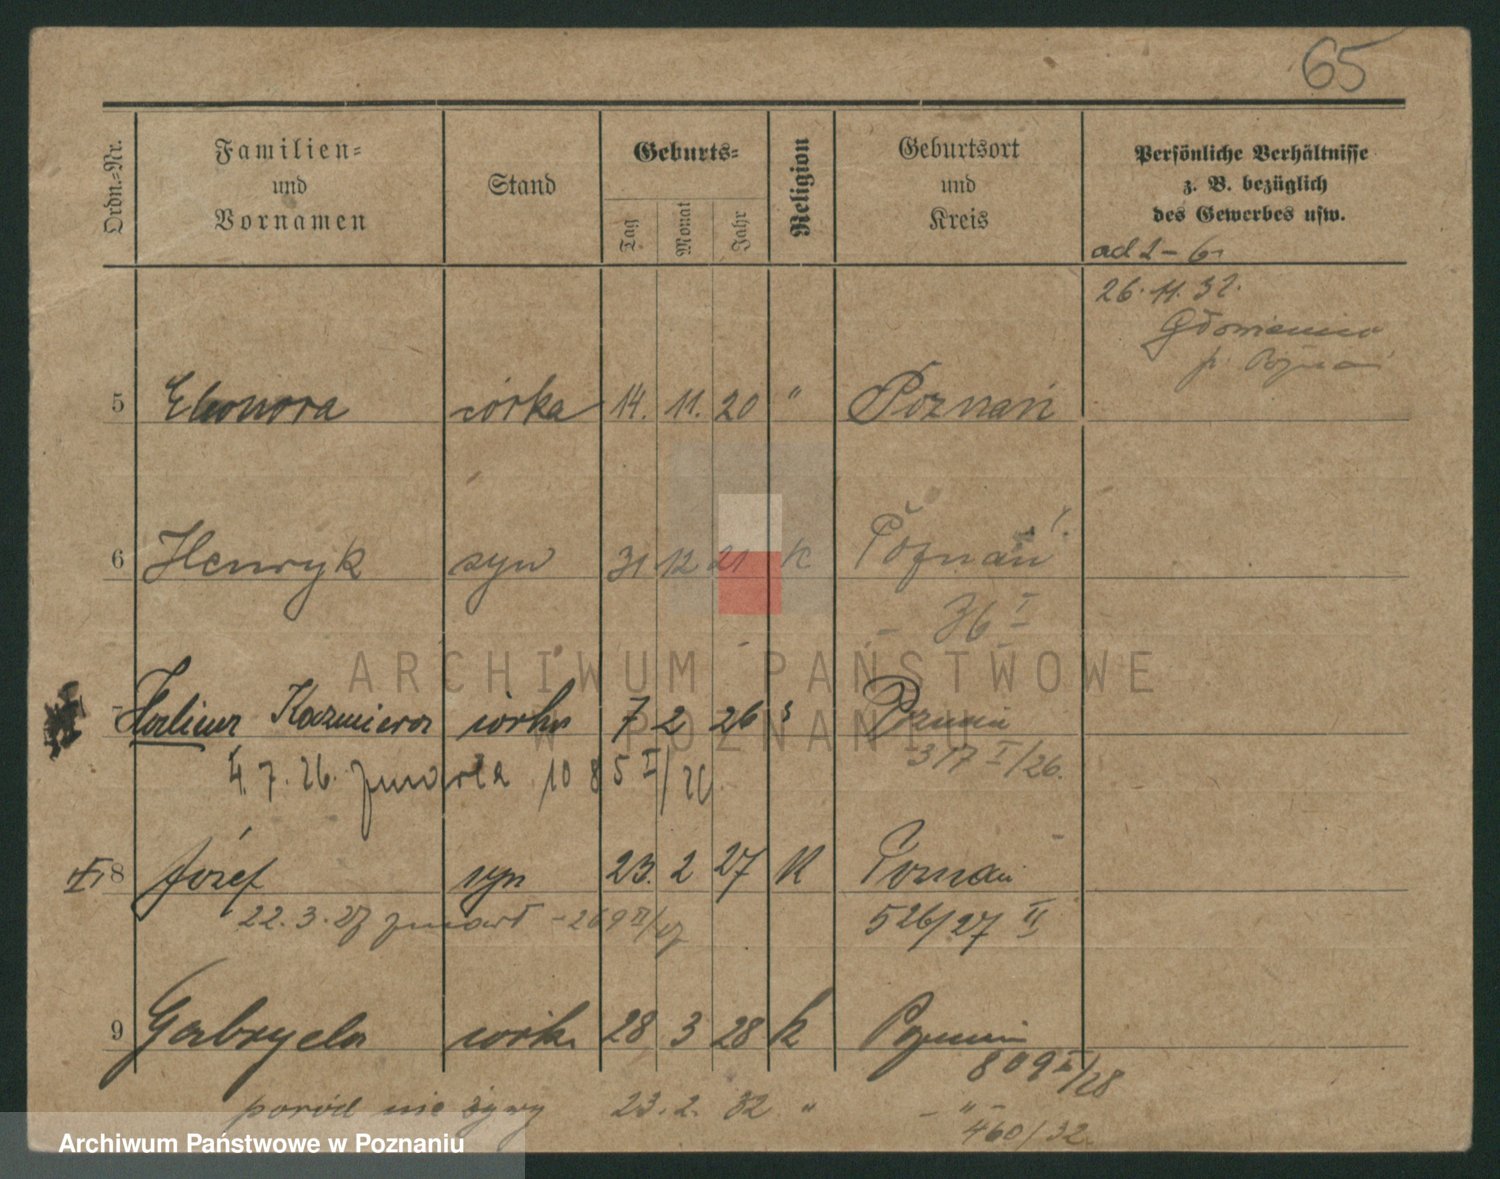 65
Ordn.=Nr.
Familien=
und
Vornamen
Stand
Geburts=
Tag
Monat
Jahr
Religion
Geburtsort
und
Kreis
Persönliche Verhältnisse
z. B. bezüglich
des Gewerbes usw.
ad 1-6
26.11.32.
5 Eleonora córka 14. 11. 20 " Poznań
6 Henryk syn 31 12 21 K Poznań
36 I
7 Halina Kazmiera córka 7 2 26 Poznań
317 I/26.
4.7.26. zmarła 1085 I/26
8 Józef syn 23. 2 27 K Poznań
22.3.27 zmarł -269 II/27 526/27 II
9 Gabryela córka 28 3 28 k Poznań
809 I/28
poród nie żywy 23. 2. 32 " - " -
460/32.
ARCHIWUM PAŃSTWOWE
W POZNANIU
Archiwum Państwowe w Poznaniu